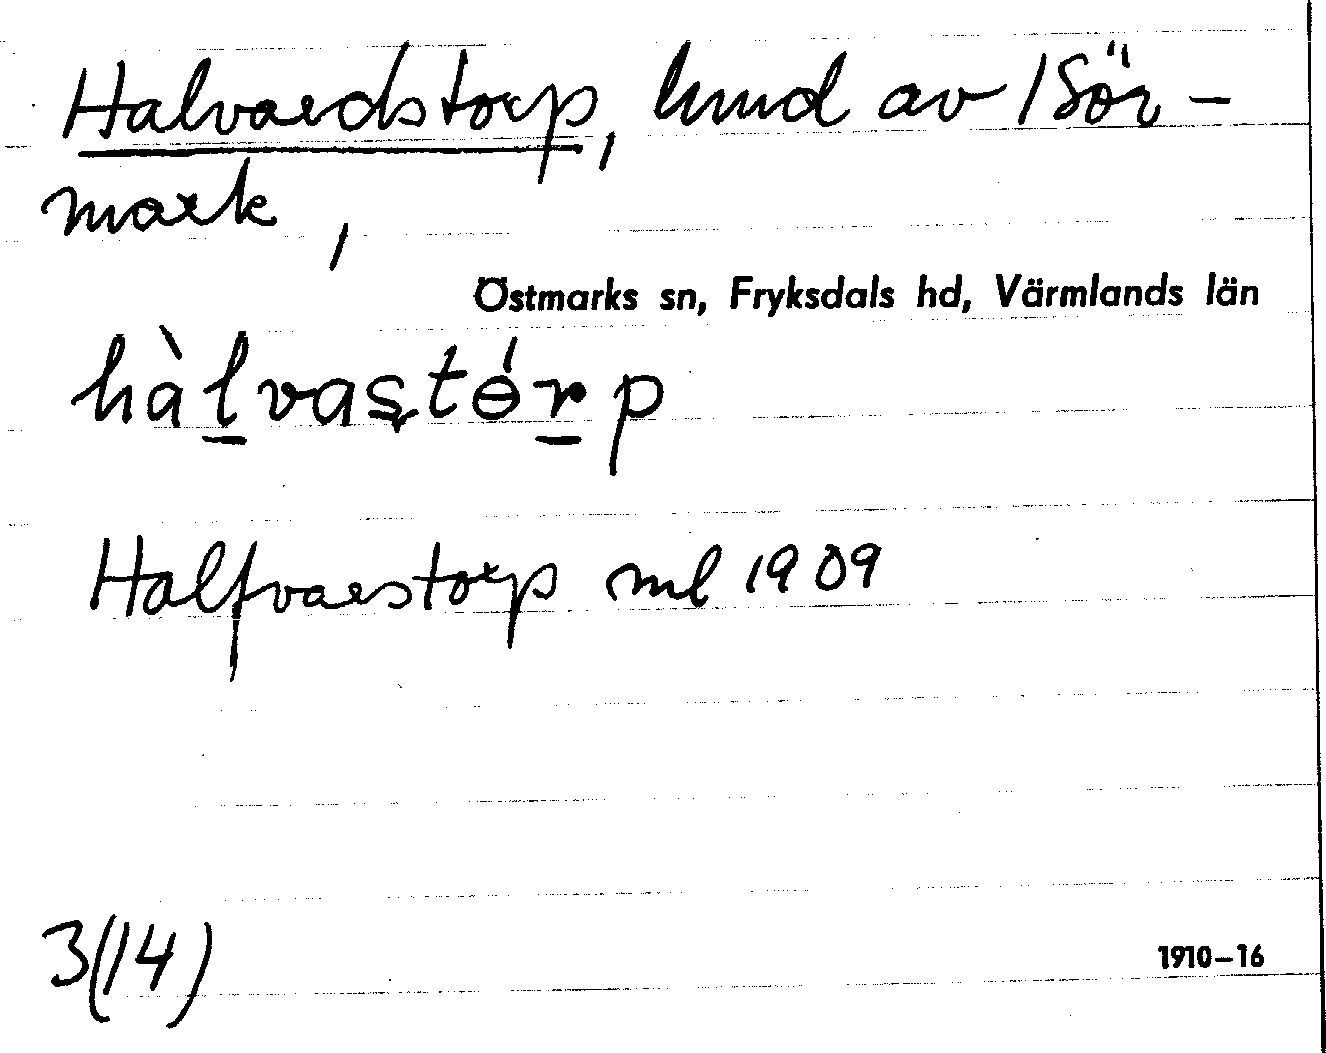 Halvardstorp, hmd av 1 Sör-
mark,
Östmarks sn, Fryksdals hd, Värmlands län
hàl̠vas̡tɵ́r̠p
Halfvarstorp ml 1909
3(14)
1910–16